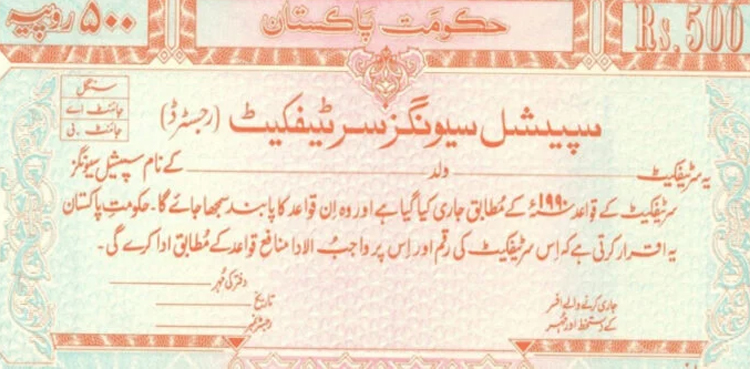 ۵۰۰ روپیہ
حکومت پاکستان
Rs. 500
سنگل
جائنٹ اے
جائنٹ ۔ بی
سپیشل سیونگز سرٹیفکیٹ (رجسٹرڈ)
یہ سرٹیفکیٹ ولد کے نام سپیشل سیونگز
سرٹیفکیٹ کے قواعد ۱۹۹۰ء کے مطابق جاری کیا گیا ہے اور وہ اِن قواعد کا پابند سمجھا جائے گا۔ حکومتِ پاکستان
یہ اقرار کرتی ہے کہ اِس سرٹیفکیٹ کی رقم اور اِس پر واجبُ الادا منافع قواعد کے مطابق ادا کرے گی۔
دفتر کی مُہر
جاری کرنے والے افسر
تاریخ
کے دستخط اور مُہر
رجسٹر نمبر